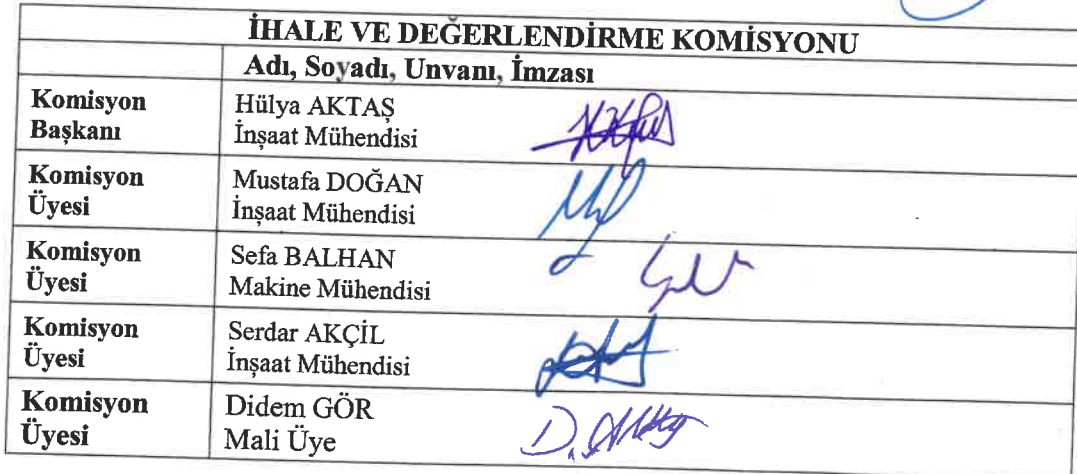 İHALE VE DEĞERLENDİRME KOMİSYONU
Adı, Soyadı, Unvanı, İmzası
Komisyon Başkanı
Hülya AKTAŞ
İnşaat Mühendisi
Komisyon Üyesi
Mustafa DOĞAN
İnşaat Mühendisi
Komisyon Üyesi
Sefa BALHAN
Makine Mühendisi
Komisyon Üyesi
Serdar AKÇİL
İnşaat Mühendisi
Komisyon Üyesi
Didem GÖR
Mali Üye